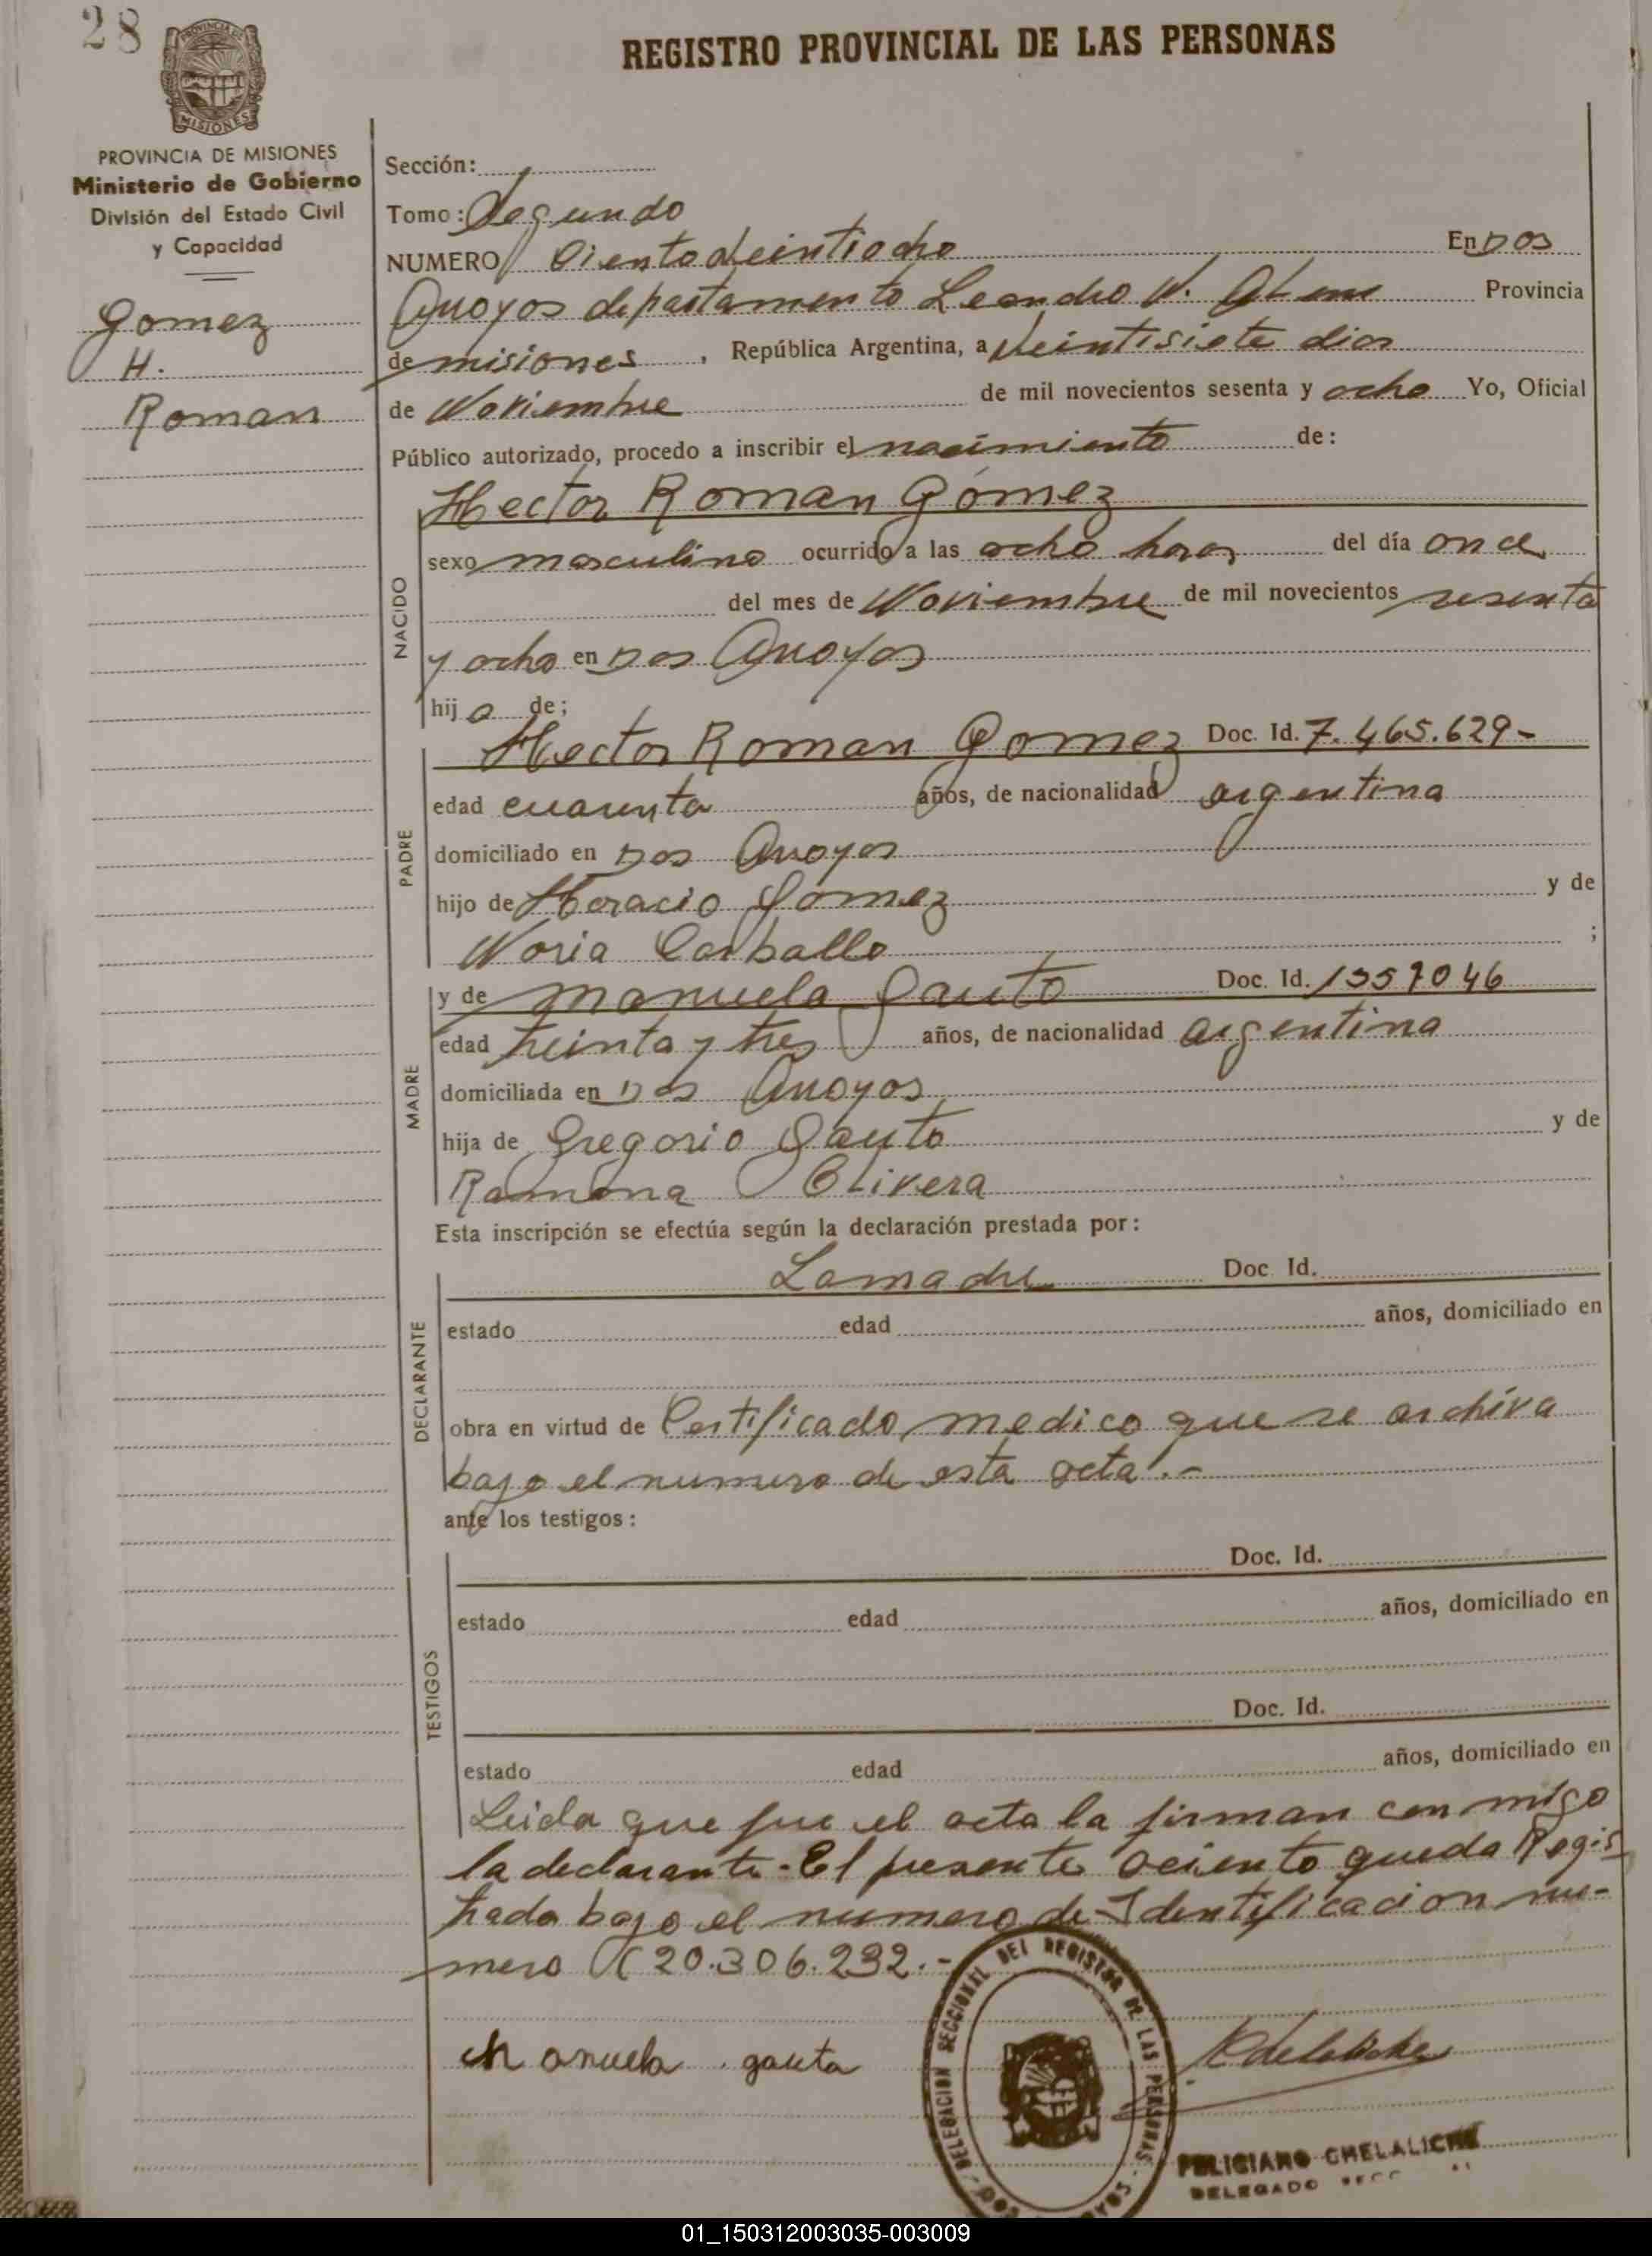 28
REGISTRO PROVINCIAL DE LAS PERSONAS
MISIONES
PROVINCIA DE MISIONES
Ministerio de Gobierno
División del Estado Civil
y Capacidad
Gomez
H.
Roman
Sección:
Tomo: Segundo
NUMERO Cientoveintiocho En Dos
Arroyos departamento Leandro N. Alem Provincia
de misiones, República Argentina, a Veintisiete dias
de Noviembre de mil novecientos sesenta y ocho Yo, Oficial
Público autorizado, procedo a inscribir el nacimiento de:
NACIDO
Hector Roman Gomez
sexo masculino ocurrido a las ocho horas del día once
del mes de Noviembre de mil novecientos sesenta
y ocho en Dos Arroyos
hijo de;
PADRE
Hector Roman Gomez Doc. Id. 7.465.629-
edad cuarenta años, de nacionalidad argentina
domiciliado en Dos Arroyos
hijo de Horacio Gomez y de
Noria Carballo ;
MADRE
y de Manuela Gauto Doc. Id.
edad treinta y tres años, de nacionalidad argentina
domiciliada en Dos Arroyos
hija de Gregorio Gauto y de
Ramona Olivera
Esta inscripción se efectúa según la declaración prestada por:
DECLARANTE
La madre Doc. Id.
estado edad años, domiciliado en
obra en virtud de Certificado medico que se archiva
bajo el numero de esta acta.-
ante los testigos:
TESTIGOS
Doc. Id.
estado edad años, domiciliado en
Doc. Id.
estado edad años, domiciliado en
Leida que fue el acta la firman conmigo
la declarante. El presente aciento queda Regis
trado bajo el numero de Identificacion nu-
mero 20.306.232.-
Manuela gauta
DELEGACION SECCIONAL DEL REGISTRO DE LAS PERSONAS
FELICIANO CHELALICHE
DELEGADO
01_150312003035-003009